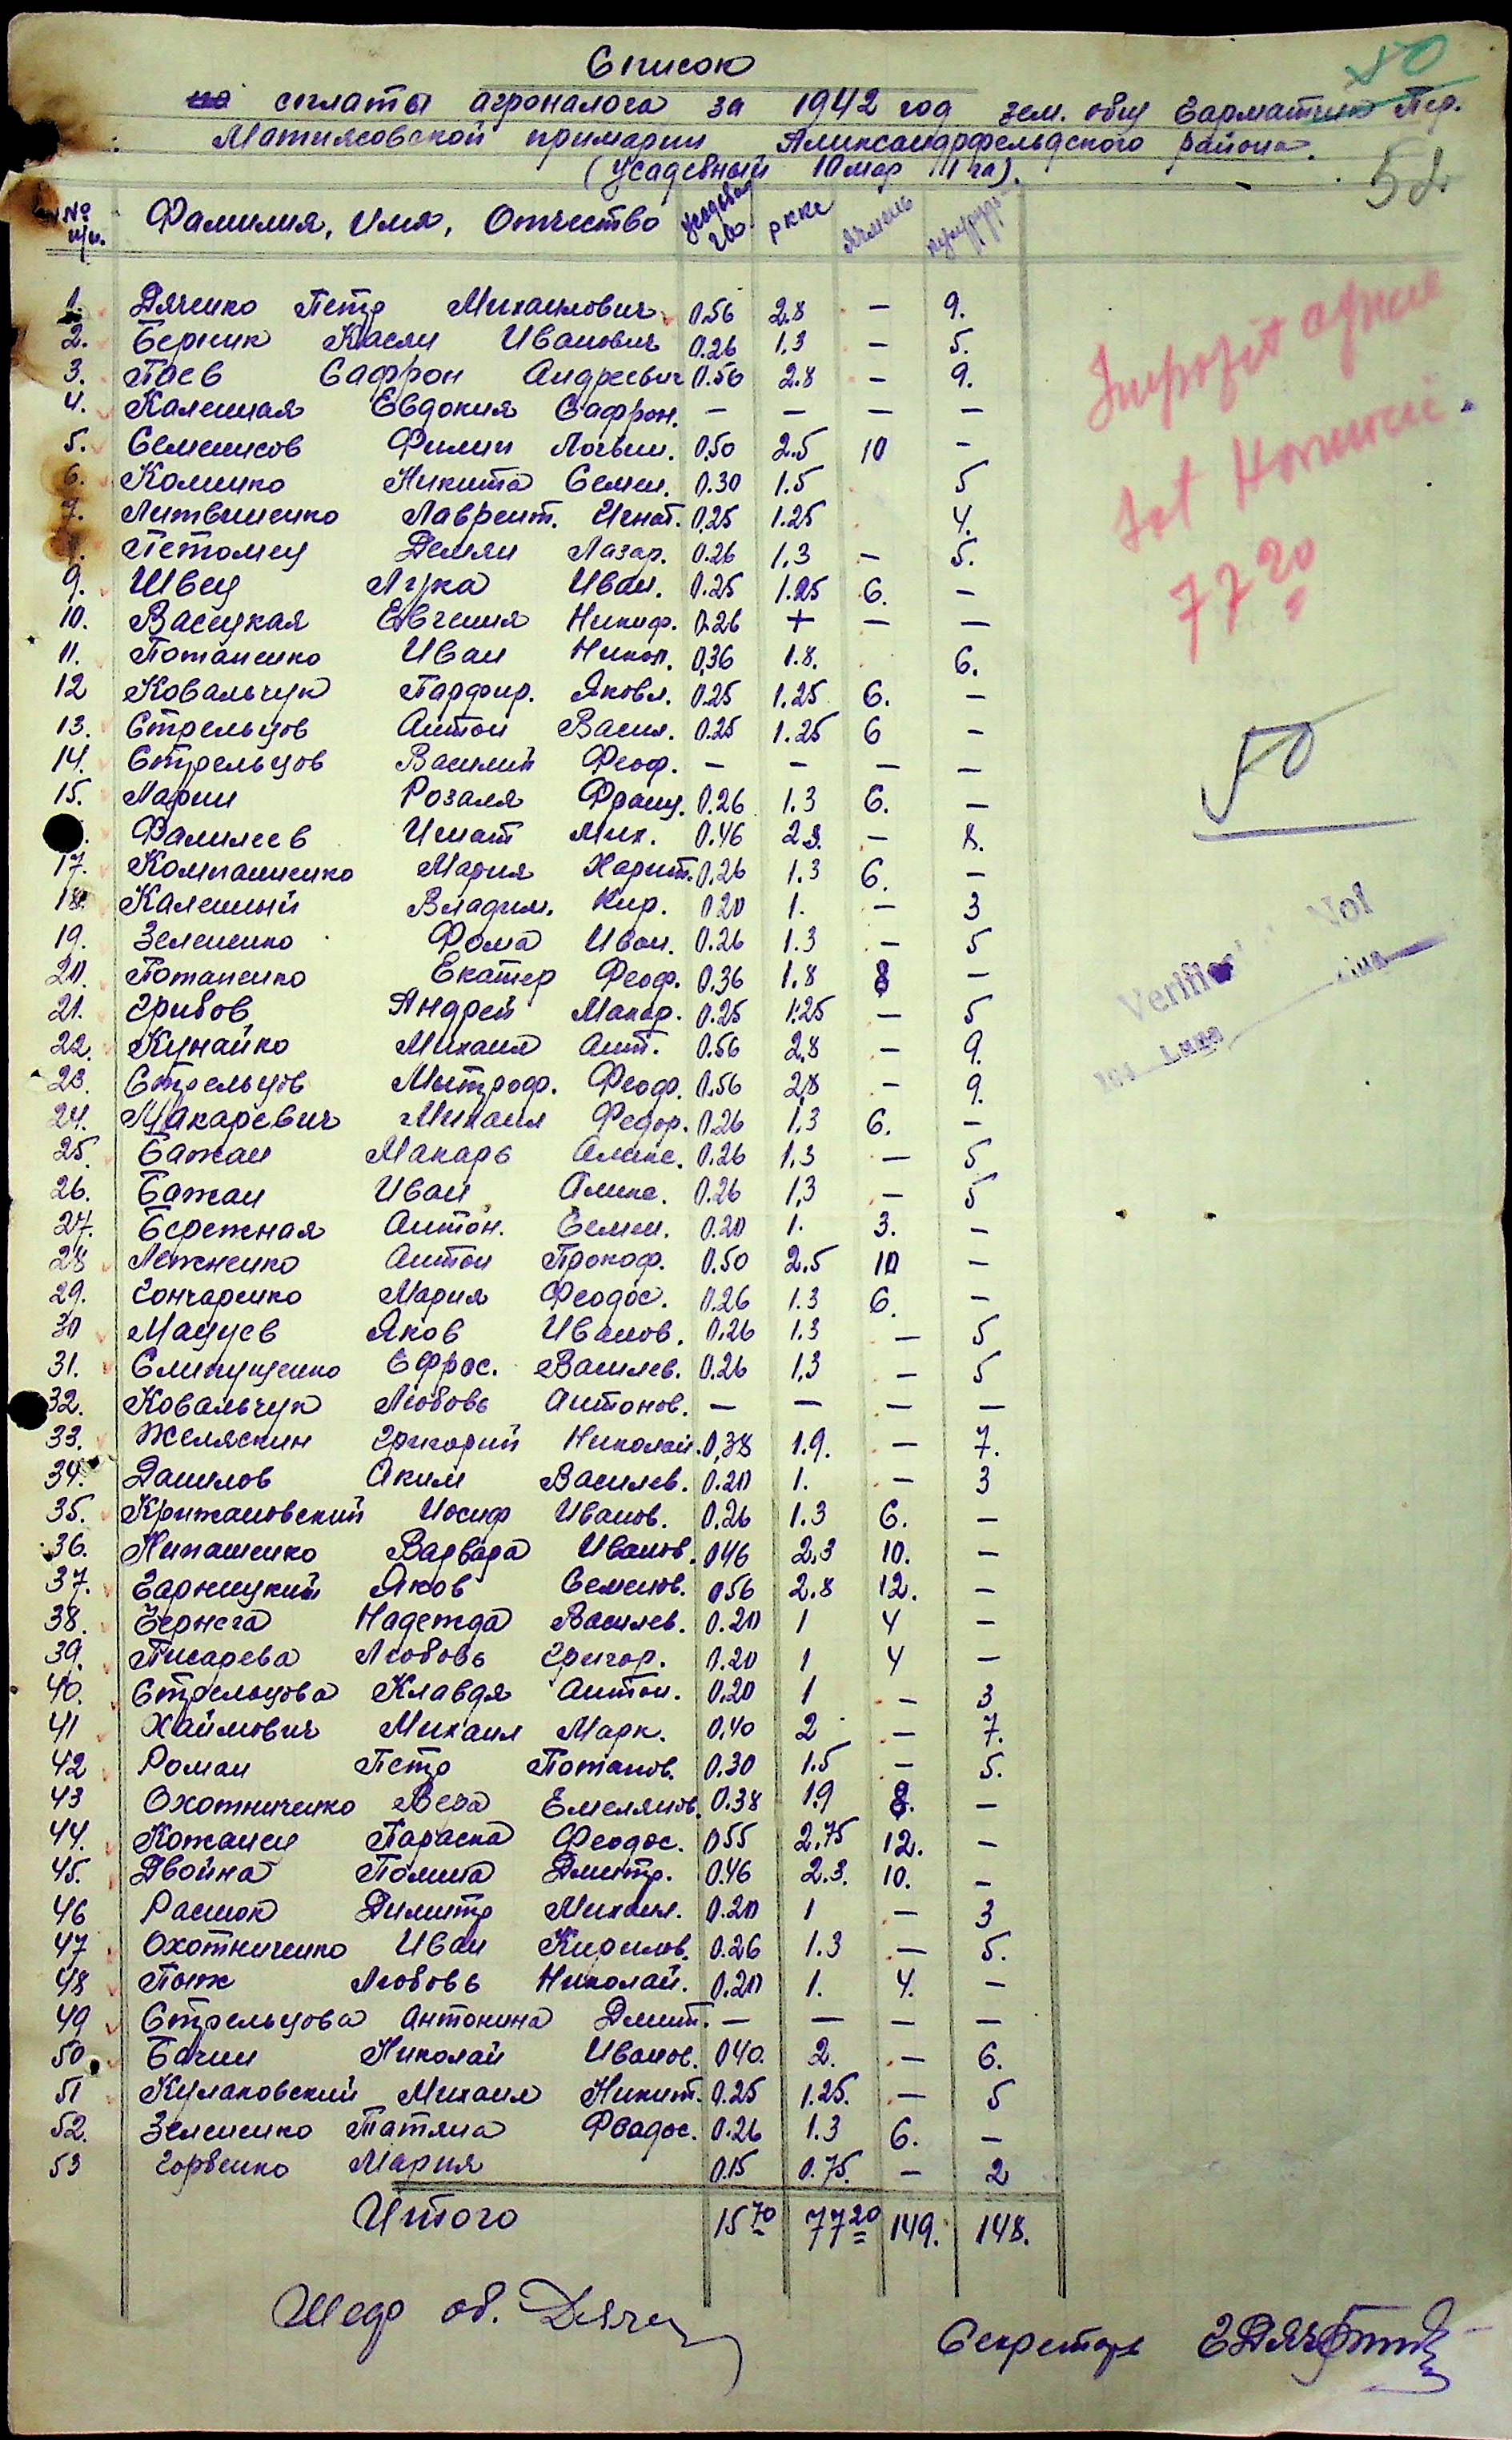 Список
50
на сплаты агроналога за 1942 год зем. общ Сарматско Пер.
Матиясовской примарии Александрфельдского района.
(усадебный 10 мар 1 га).
52.
№ п/п. Фамилия, Имя, Отчество га ркке ячмень кукуруз
1. Дяченко Петр Михайлович 0.56 2.8 — 9.
2. Берник Касян Иванович 0.26 1.3 — 5.
3. Паев Сафрон Андреевич 0.56 2.8 — 9.
4. Каленная Евдокия Сафрон. — — — —
5. Семенисов Филип Логвин. 0.50 2.5 10 —
6. Коленко Никита Семен. 0.30 1.5 5
7. Литвиненко Лаврент. Игнат. 0.25 1.25 4.
Петомец Демян Лазар. 0.26 1.3 — 5.
9. Швец Лука Иван. 0.25 1.25 6. —
10. Васецкая Евгения Никиф. 0.26 + — —
11. Потапенко Иван Никол. 0.36 1.8. 6.
12 Ковальчук Парфир. Яковл. 0.25 1.25 6. —
13. Стрельцов Антон Васил. 0.25 1.25 6 —
14. Стрельцов Василий Феоф. — — — —
15. Марин Розаля Франц. 0.26 1.3 6. —
Фалилеев Игнат Мих. 0.46 2.3. — 8.
17. Компаниенко Мария Харит. 0.26 1.3 6. —
18. Каленный Владим. Кир. 0 20 1. — 3
19. Зелененко Фома Иван. 0.26 1.3 — 5
20. Потапенко Екатер Феоф. 0.36 1.8 8 —
21. Грибов Андрей Макар. 0.25 1.25 — 5
22. Кунайко Михаил Ант. 0.56 2.8 — 9.
23. Стрельцов Митроф. Феоф. 0.56 2.8 — 9.
24. Макаревич Михаил Федор. 0.26 1.3 6. —
25. Бажан Макарь Алекс. 0.26 1.3 — 5
26. Бажан Иван Алекс. 0.26 1,3 — 5
27. Бережная Антон. Семен. 0.20 1. 3. —
28 Лежненко Антон Прокоф. 0.50 2.5 10 —
29. Гончаренко Мария Феодос. 0.26 1.3 6. —
30 Мацуев Яков Иванов. 0.26 1.3 — 5
31. Слипущенко Ефрос. Василев. 0.26 1,3 — 5
32. Ковальчук Любовь Антонов. — — — —
33. Желяскин Григорий Николай. 0,38 1.9. — 7.
34. Данилов Аким Василев. 0.20 1. — 3
35. Крижановский Иосиф Иванов. 0.26 1.3 6. —
36. Нипашенко Варвара Иванов. 046 2.3 10. —
37. Гарницкий Яков Семенов. 056 2.8 12. —
38. Зернега Надежда Василев. 0.20 1 4 —
39. Писарева Любовь Григор. 0.20 1 4 —
40. Стрельцова Клавдя Антон. 0.20 1 — 3
41 Хаймович Михаил Марк. 0.40 2 — 7.
42 Роман Петр Потапов. 0.30 1.5 — 5.
43 Охотниченко Вера Емелянов. 0.38 1.9 8. —
44. Кожанец Параска Феодос. 055 2.75 12. —
45. Двойна Полина Дмитр. 0.46 2.3. 10. —
46 Расток Димитр Михаил. 0.20 1 — 3
47 Охотниченко Иван Кирилов. 0.26 1.3 — 5.
48 Пож Любовь Николай. 0.20 1. 4. —
49 Стрельцова Антонина Дмит. — — — —
50 Бачин Николай Иванов. 040. 2. — 6.
51 Кулаковский Михаил Никит. 0.25 1.25. — 5
52. Зелененко Татяна Феодос. 0.26 1.3 6. —
53 Горвенко Мария 0.15 0.75. — 2
Итого 15 70 77 20 149. 148.
Impozit agricol
77 20
50
Verificat Nol
Luna
Шеф об. Дяче
Секретарь